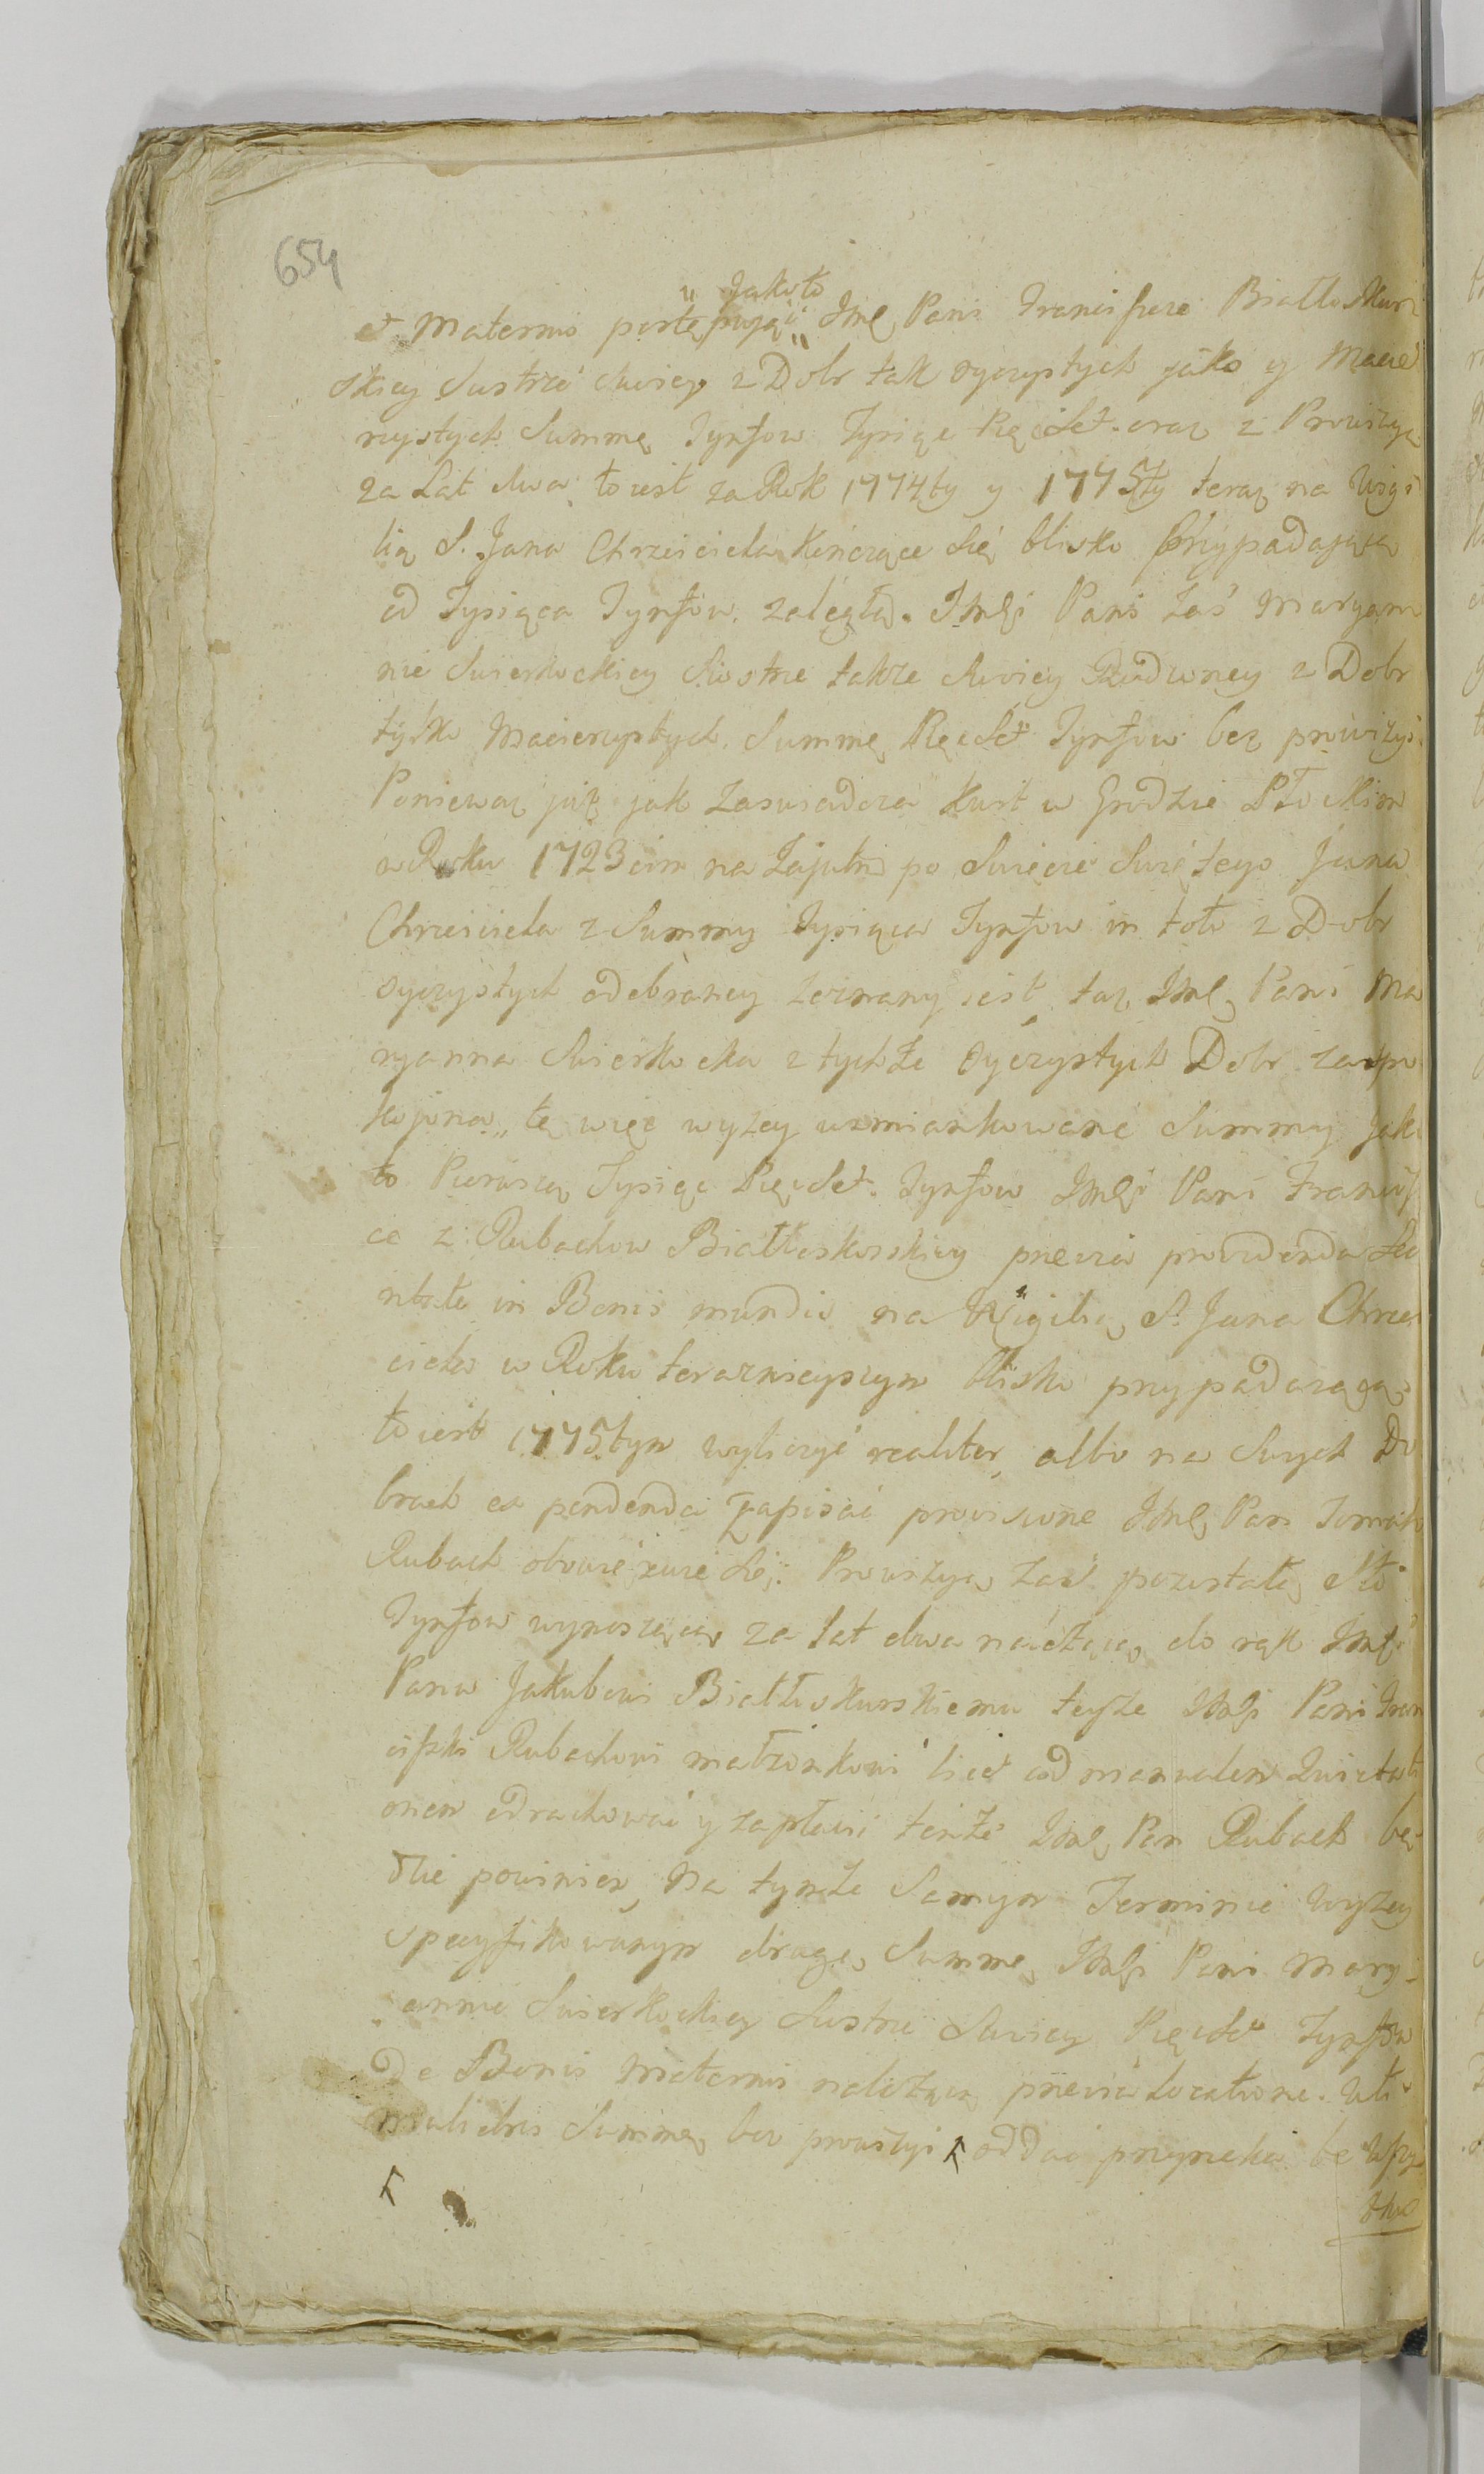 654
Jakoto
et Maternis postępuiąc Jmę Pani Franciszce Białłoskur
skiey Siostrze swoiey z Dobr tak oyczystych jako y Macie
rzystych Summę Tynfow Tysiąc Pięćset oraz z Prowizyą
za Lat dwa to iest za Rok 1774ty y 1775ty teraz na Wigi
lią S. Jana Chrzciciela kończące się blisko Przypadaiącą
od Tysiąca Tynfow zaległą. Jmci Pani zaś Maryan
nie Swierkockiey Siostrze także swoiey Rodzoney z Dobr
tylko Macierzystych Summę Pięćset Tynfow bez prowizyi
Poniewaz już jak zaswiadcza kwit w Grodzie Płockim
w Roku 1723cim na Zajutrz po Swięcie Swiętego Jana
Chrzciciela z Summy Tysiąca Tynfow in toto z Dobr
oyczystych odebraney zeznany iest taż Jmę Pani Ma
ryanna Swierkocka z tychże Oyczystych Dobr zaspo
kojona, te więc wyzey wzmiankowane Summy jako
to Pierwszą Tysiąc Pięćset Tynfow Jmci Pani Francisz
ce z Rubachow Białłoskurskiey
in Bonis mundis na Wigilią S. Jana Chrzci
ciela w Roku teraznieyszym blisko przypadaiącą
to iest 1775tym wyliczyć realiter, albo na Swych Do
brach ex pendendā zapisać provisione Jmę Pan Tomasz
Rubach obowiązuie się. Prowizyą zaś pozostałą Sto
Tynfow wynoszącą za lat dwa należącą do rąk Jmci
Pana Jakubowi Białłoskurskiemu teyże Jmci Pani Fran
ciszki Rubachowi małżonkowi ad manualem Quietati
onem odrachować y zapłacić tenże Jmę Pan Rubach bę
dzie powinien, Na tymże Samym Terminie wyzey
specyfikowanym drugą Summę Jmci Pani Mary-
annie Swierkockiey Siostrze Swoiey Pięćset Tynfow
De Bonis Maternis należącą previa locatione. uti
mulieris Summę bez prowizyi oddać przyrzeka